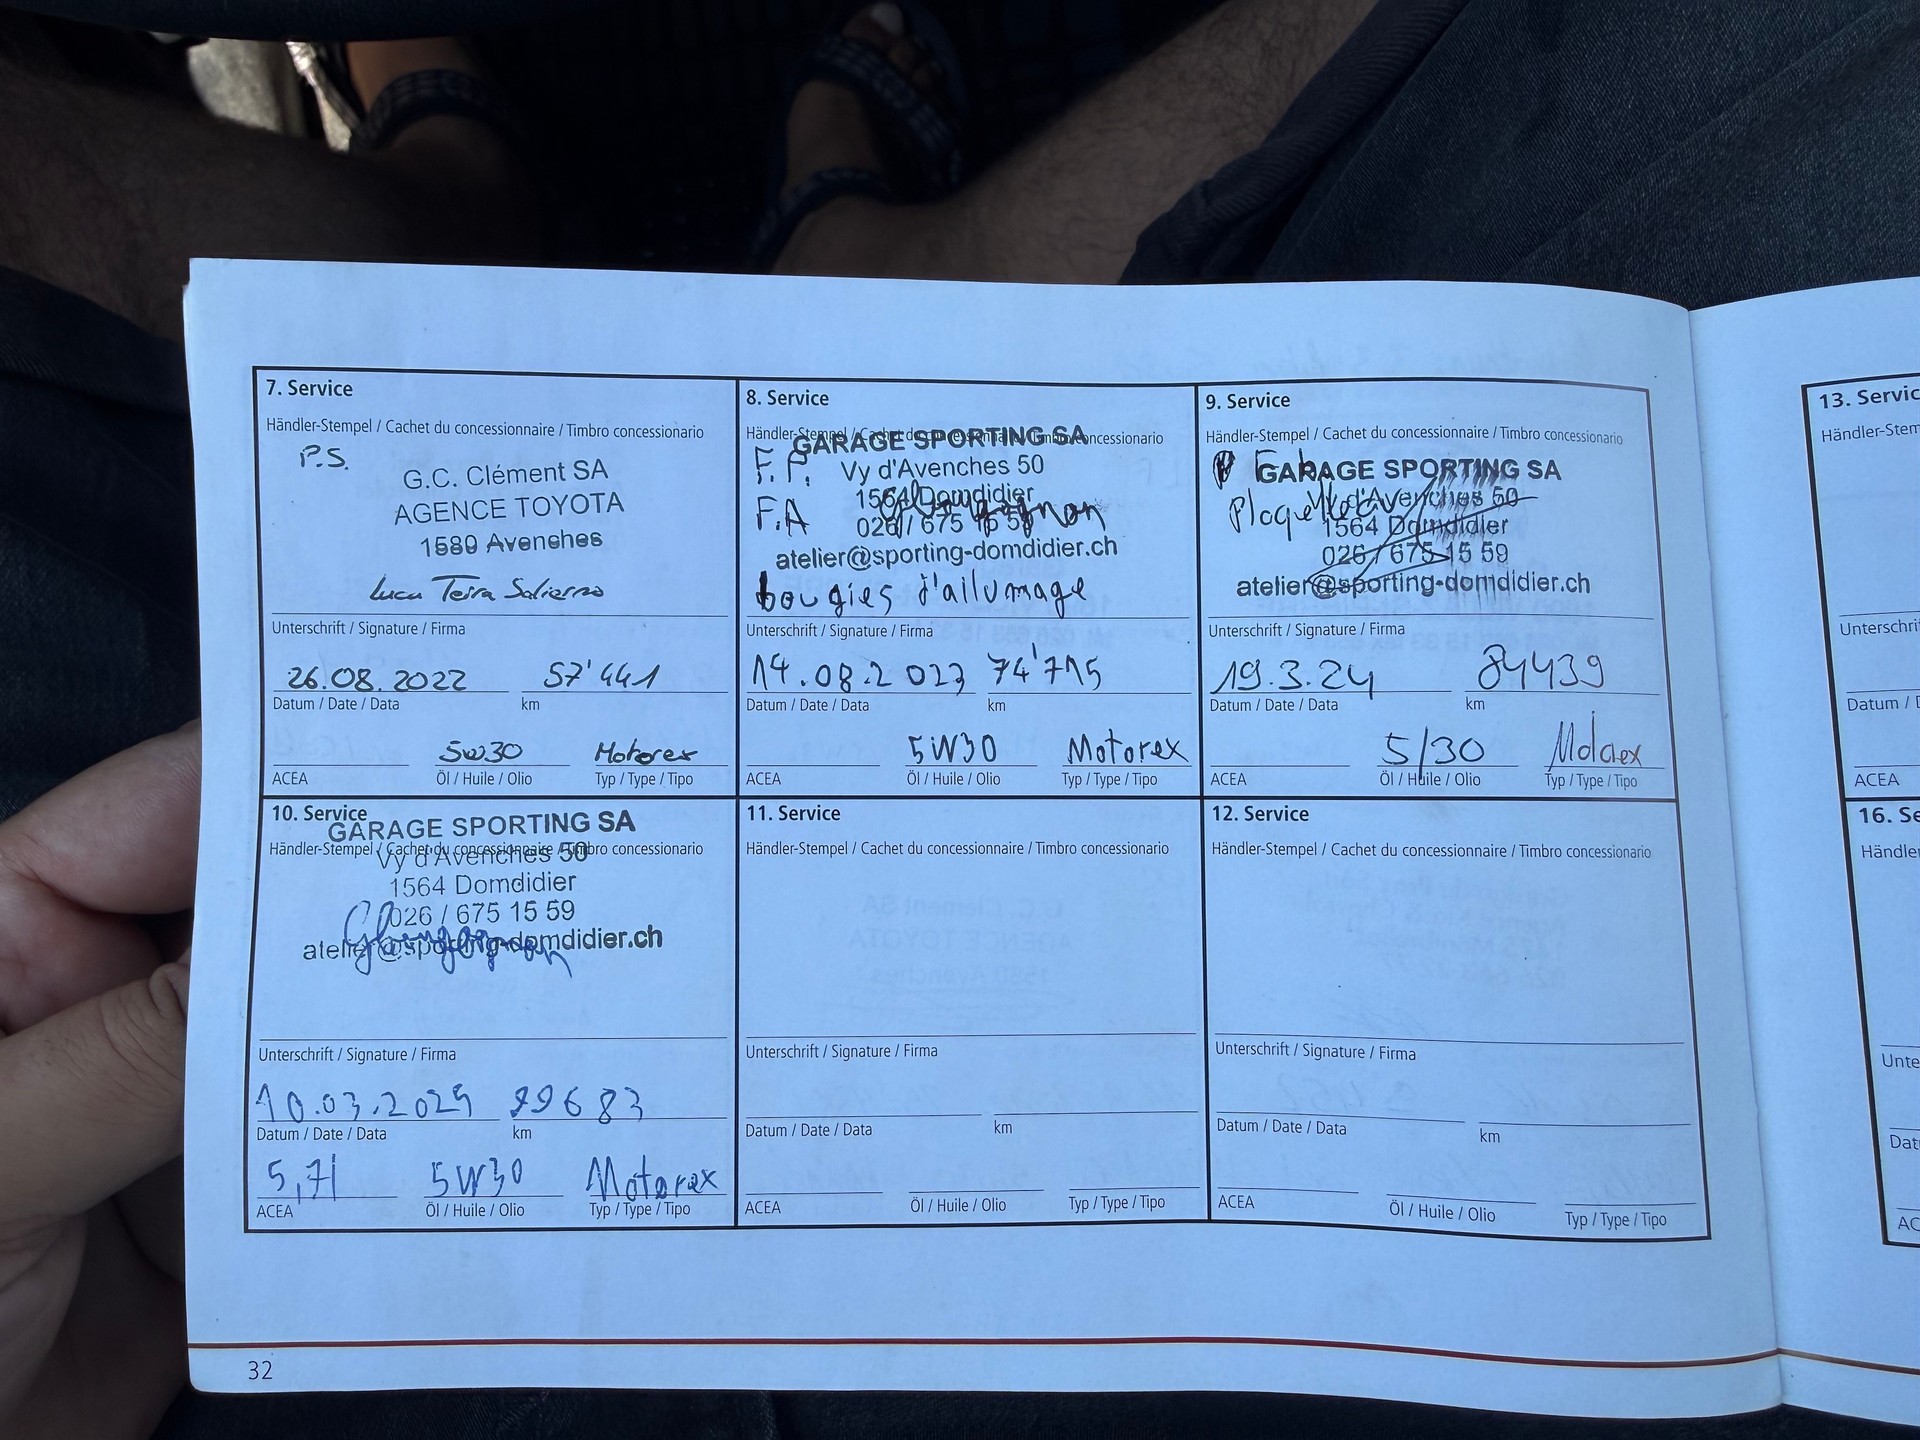 7. Service
Händler-Stempel / Cachet du concessionnaire / Timbro concessionario
P.S.
G.C. Clément SA
AGENCE TOYOTA
1580 Avenches
Luca Terra Salierno
Unterschrift / Signature / Firma
26.08.2022 57'441
Datum / Date / Data km
5W30 Motorex
ACEA Öl / Huile / Olio Typ / Type / Tipo
8. Service
Händler-Stempel / Cachet du concessionnaire / Timbro concessionario
GARAGE SPORTING SA
F.P. Vy d'Avenches 50
1564 Domdidier
F.A 026 / 675 15 59
atelier@sporting-domdidier.ch
bougies d'allumage
Unterschrift / Signature / Firma
14.08.2023 74'715
Datum / Date / Data km
5W30 Motorex
ACEA Öl / Huile / Olio Typ / Type / Tipo
9. Service
Händler-Stempel / Cachet du concessionnaire / Timbro concessionario
GARAGE SPORTING SA
Plaquette Vy d'Avenches 50
1564 Domdidier
026 / 675 15 59
atelier@sporting-domdidier.ch
Unterschrift / Signature / Firma
19.3.24 84439
Datum / Date / Data km
5/30
ACEA Öl / Huile / Olio Typ / Type / Tipo
10. Service
GARAGE SPORTING SA
Händler-Stempel / Cachet du concessionnaire / Timbro concessionario
Vy d'Avenches 50
1564 Domdidier
026 / 675 15 59
atelier@sporting-domdidier.ch
Unterschrift / Signature / Firma
10.03.2025 99683
Datum / Date / Data km
5,7l 5W30 Motorex
ACEA Öl / Huile / Olio Typ / Type / Tipo
11. Service
Händler-Stempel / Cachet du concessionnaire / Timbro concessionario
Unterschrift / Signature / Firma
Datum / Date / Data km
ACEA Öl / Huile / Olio Typ / Type / Tipo
12. Service
Händler-Stempel / Cachet du concessionnaire / Timbro concessionario
Unterschrift / Signature / Firma
Datum / Date / Data km
ACEA Öl / Huile / Olio Typ / Type / Tipo
32
13. Servic
Händler-Stem
Unterschri
Datum / D
ACEA
16. Se
Händler
Unte
Dat
AC